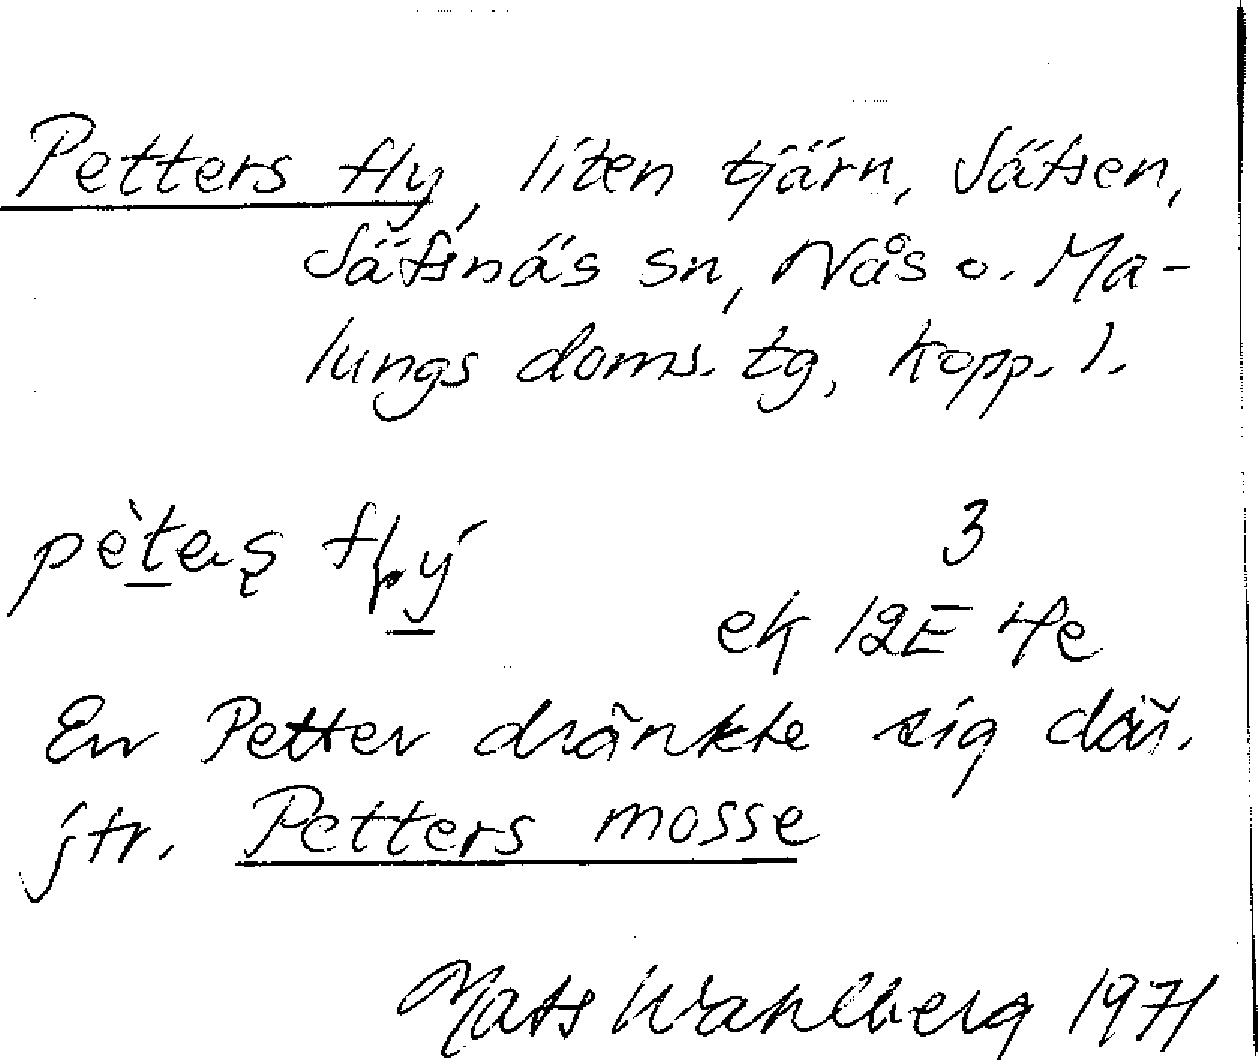 Petters fly, liten tjärn, Sätsen,
Sätsnäs sn, Nås o. Ma-
lungs doms. tg, Kopp. l.
3
ek 12E 4e
En Petter dränkte sig där.
jtr. Petters mosse
Mats Wahlberg 1971